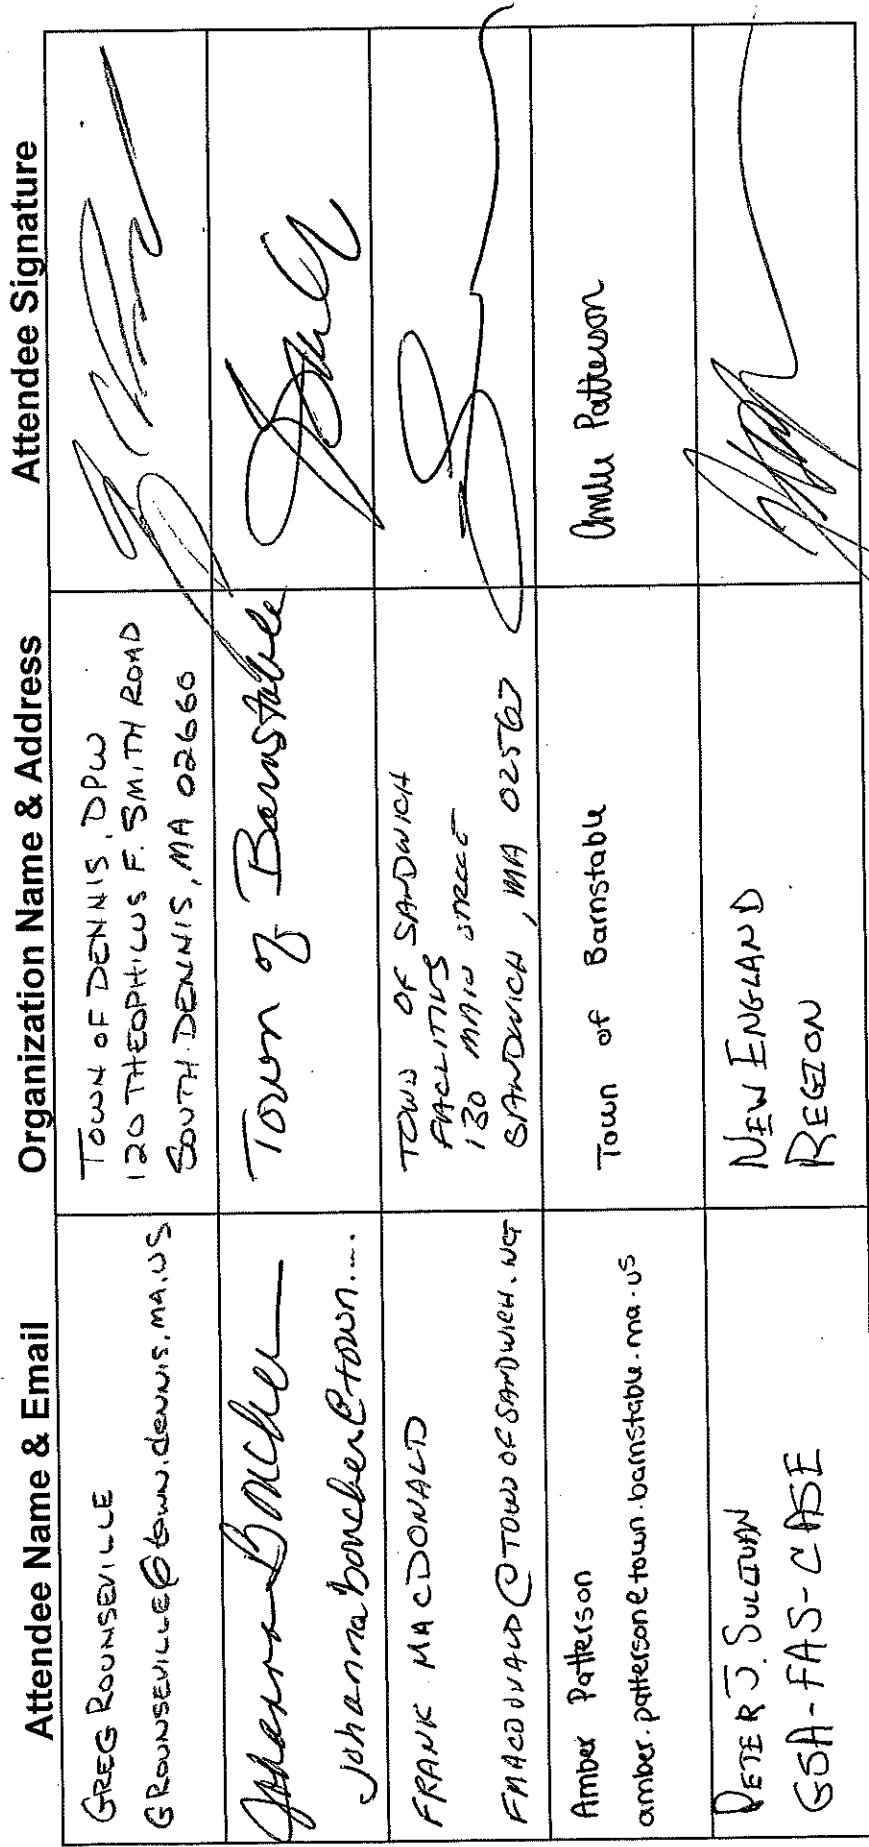 Attendee Name & Email
Organization Name & Address
Attendee Signature
GREG ROUNSEVILLE
GROUNSEVILLE@town.dennis.ma.us
TOWN OF DENNIS, DPW
120 THEOPHILUS F. SMITH ROAD
SOUTH DENNIS, MA 02660
Johanna Boucher
johanna.boucher@town....
Town of Barnstable
FRANK MACDONALD
FMACDONALD@TOWNOFSANDWICH.NET
TOWN OF SANDWICH
FACILITIES
130 MAIN STREET
SANDWICH, MA 02563
Amber Patterson
amber.patterson@town.barnstable.ma.us
Town of Barnstable
Amber Patterson
PETER J. SULLIVAN
GSA-FAS-CASE
NEW ENGLAND
REGION